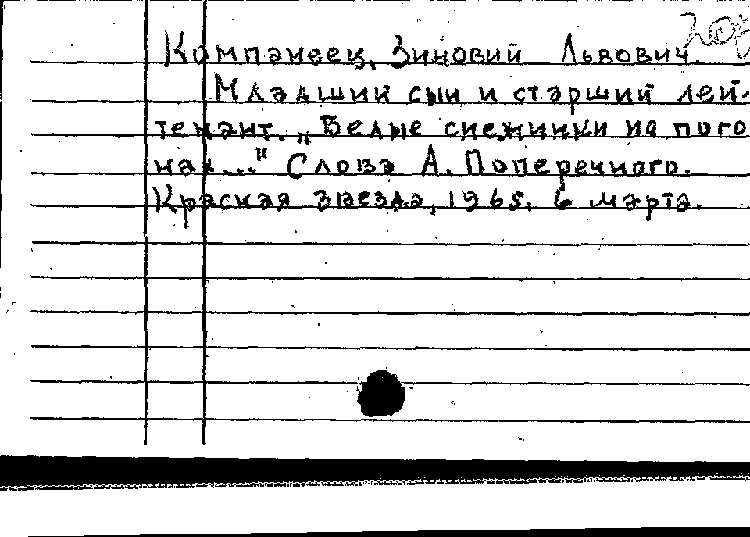 Компанеец, Зиновий Львович.
Младший сын и старший лей-
тенант. „Белые снежинки на пого
нах..." Слова А. Поперечного.
Красная звезда, 1965, 6 марта.